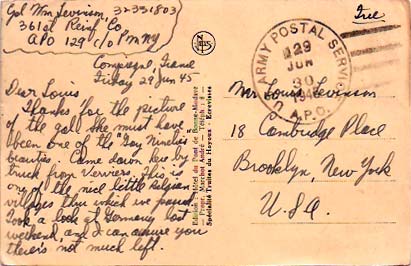 Wm Levinson, 32331803
361st Reinf Co,
APO 129 c/o Pm NY
Free
Friday 29 Jun 45
Dear Louis
Thanks for the picture
of the gal. She must have
been one of the Gay Nineties
beauties. Came down here by
truck from Verviers. This is
one of the nice little Belgian
villages thru which we passed.
Took a look at Germany last
weekend, and I can assure you
there's not much left.
Edition : Hôtel du Pont de Bonne-Modave
Propr. Marchot André - Téléph. : 8
Spécialité Truites du Hoyoux - Ecrevisses
U.S. ARMY POSTAL SERVICE
129
JUN
30
1945
A.P.O.
Mr. Louis Levinson
18 Cambridge Place
Brooklyn, New York
U.S.A.